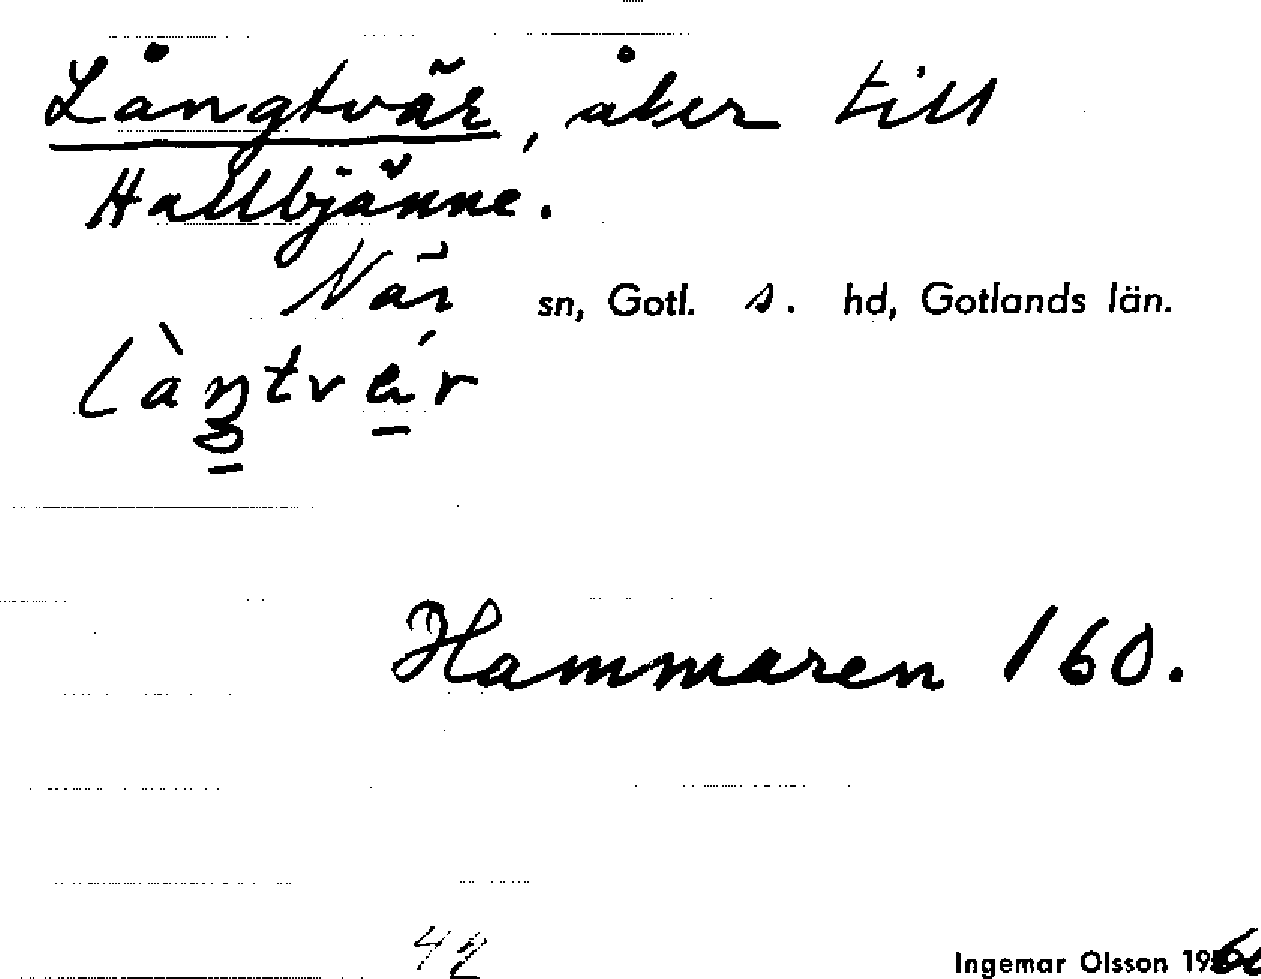 Långtvär, åker till
Hallbjänne.
När sn, Gotl. s. hd, Gotlands län.
làŋtvár
Hammaren 160.
42
Ingemar Olsson 19